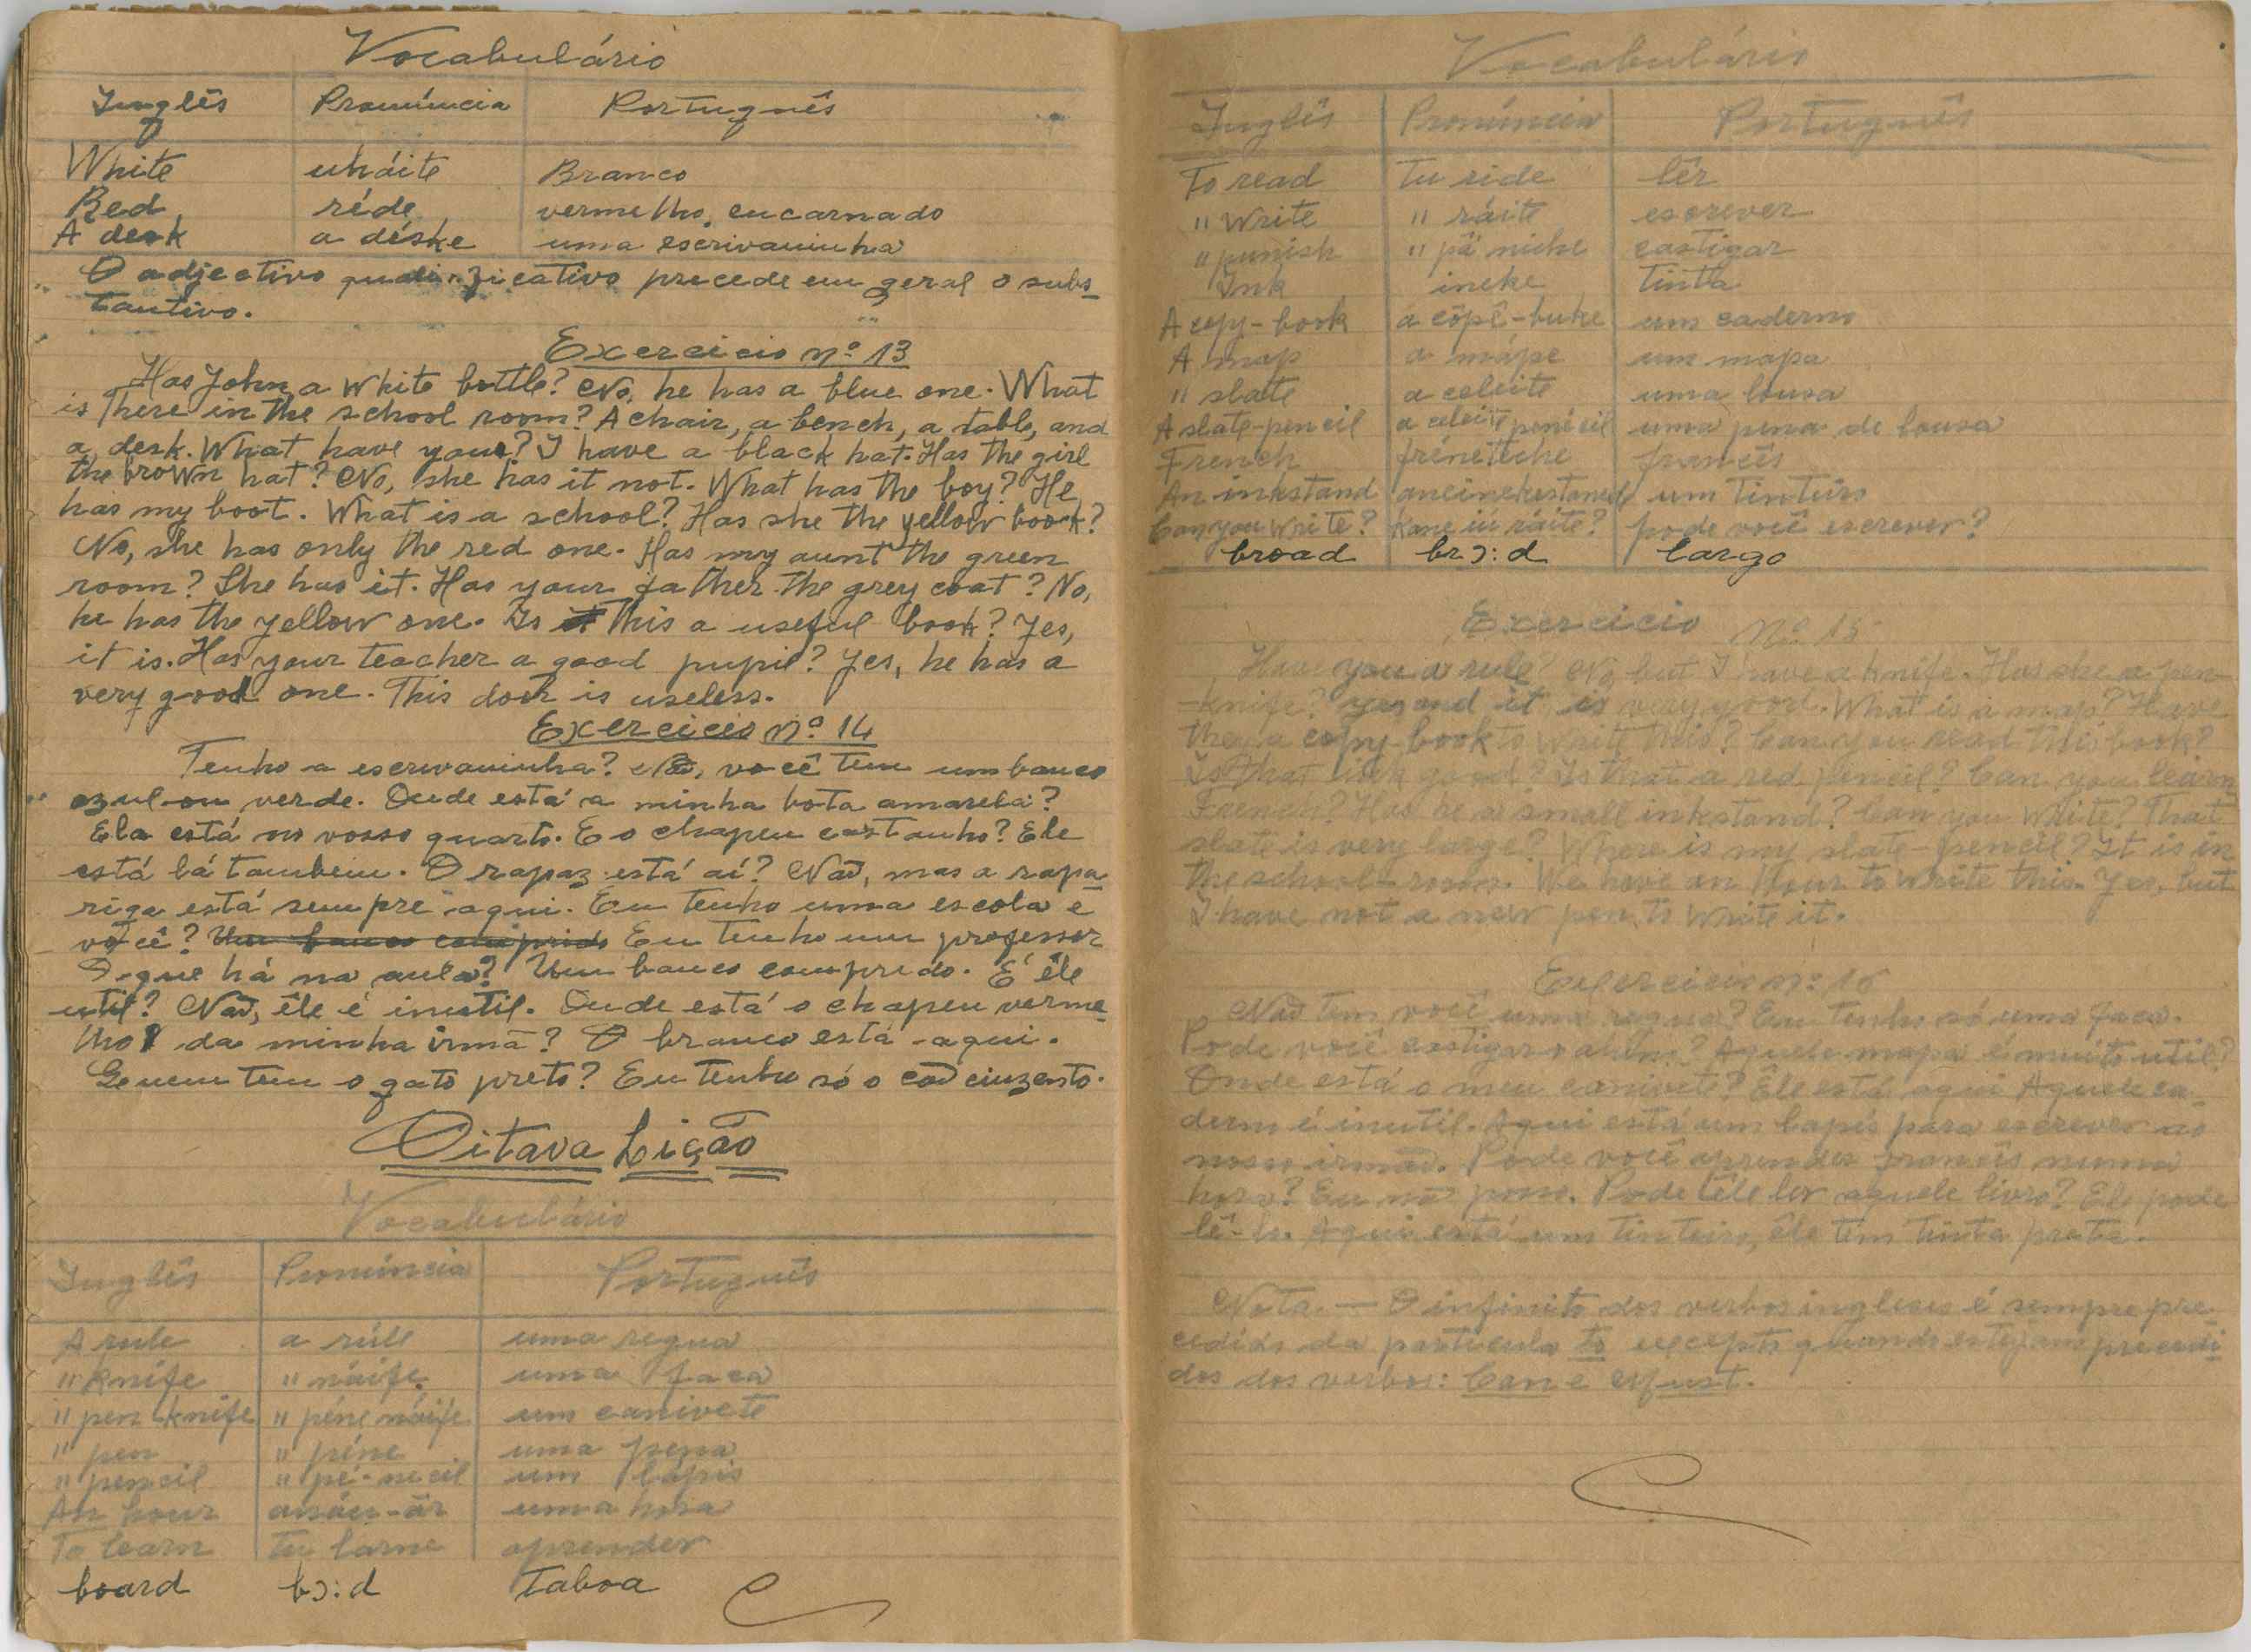 Vocabulário
Inglês Pronúncia Português
White uháite Branco
Red réde vermelho, encarnado
A desk a déske uma escrivaninha
O adjectivo precede em geral o subs-
tantivo.
Exercicio nº 13
Has John a white bottle? No, he has a blue one. What
is there in the school room? A chair, a bench, a table, and
a desk. What have you? I have a black hat. Has the girl
the brown hat? No, she has it not. What has the boy? He
has my boot. What is a school? Has she the yellow book?
No, she has only the red one. Has my aunt the green
room? She has it. Has your father the grey coat? No,
he has the yellow one. Is this a useful book? Yes,
it is. Has your teacher a good pupil? Yes, he has a
very good one. This door is useless.
Exercicio nº 14
Tenho a escrivaninha? Não, você tem um banco
azul ou verde. Onde está a minha bota amarela?
Ela está no vosso quarto. E o chapeu castanho? Ele
está lá tambem. O rapaz está aí? Não, mas a rapa-
riga está sempre aqui. Eu tenho uma escola e
você? Um banco comprido Eu tenho um professor
O que há na aula? Um banco comprido. É êle
util? Não, êle é inutil. Onde está o chapeu verme-
lho da minha irmã? O branco está aqui.
Quem tem o gato preto? Eu tenho só o cão cinzento.
Oitava Lição
Vocabulário
Inglês Pronúncia Português
A rule a rúle uma regua
" knife " náife uma faca
" pen knife " péne náife um canivete
" pen " péne uma pena
" pencil " pé-necil um lápis
An hour anáu-ár uma hora
To learn tu larne aprender
board bɔ:d Taboa
Vocabulário
Inglês Pronúncia Português
To read tu ride lêr
" write " ráite escrever
" punish " pâ niche castigar
Ink ineke tinta
A copy-book a cópê-buke um caderno
A map a mápe um mapa
" slate a celeite uma lousa
A slate-pencil a celeite penêcil uma pena de lousa
French frénetéche francês
An inkstand um tinteiro
Can you write? kane iú ráite? pode você escrever?
broad brɔ:d largo
Exercicio nº 15
Have you a rule No, but I have a knife. Has she a pen-
=knife? yes, and it is very good. What is a map? Have
they a copy-book to write this? Can you read this book?
Is that ink good? Is that a red pencil? Can you learn
French? Has he a small inkstand? Can you write? That
slate is very large? Where is my slate-pencil? It is in
the school-room. We have an hour to write this. Yes, but
I have not a new pen to write it.
Exercicio nº 16
Não tem você uma regua? Eu tenho só uma faca.
Pode você castigar o aluno? Aquele mapa é muito util?
Onde está o meu canivete? Êle está aqui Aquele ca-
derno é inutil. Aqui está um lapis para escrever ao
nosso irmão. Pode você aprender francês numa
hora? Eu não posso. Pode êle ler aquele livro? Ele pode
lê-lo. Aqui está um tinteiro, êle tem tinta preta.
Nota. — O infinito dos verbos ingleses é sempre pre-
cedido da particula to excepto quando estejam precedi-
dos dos verbos: Can e